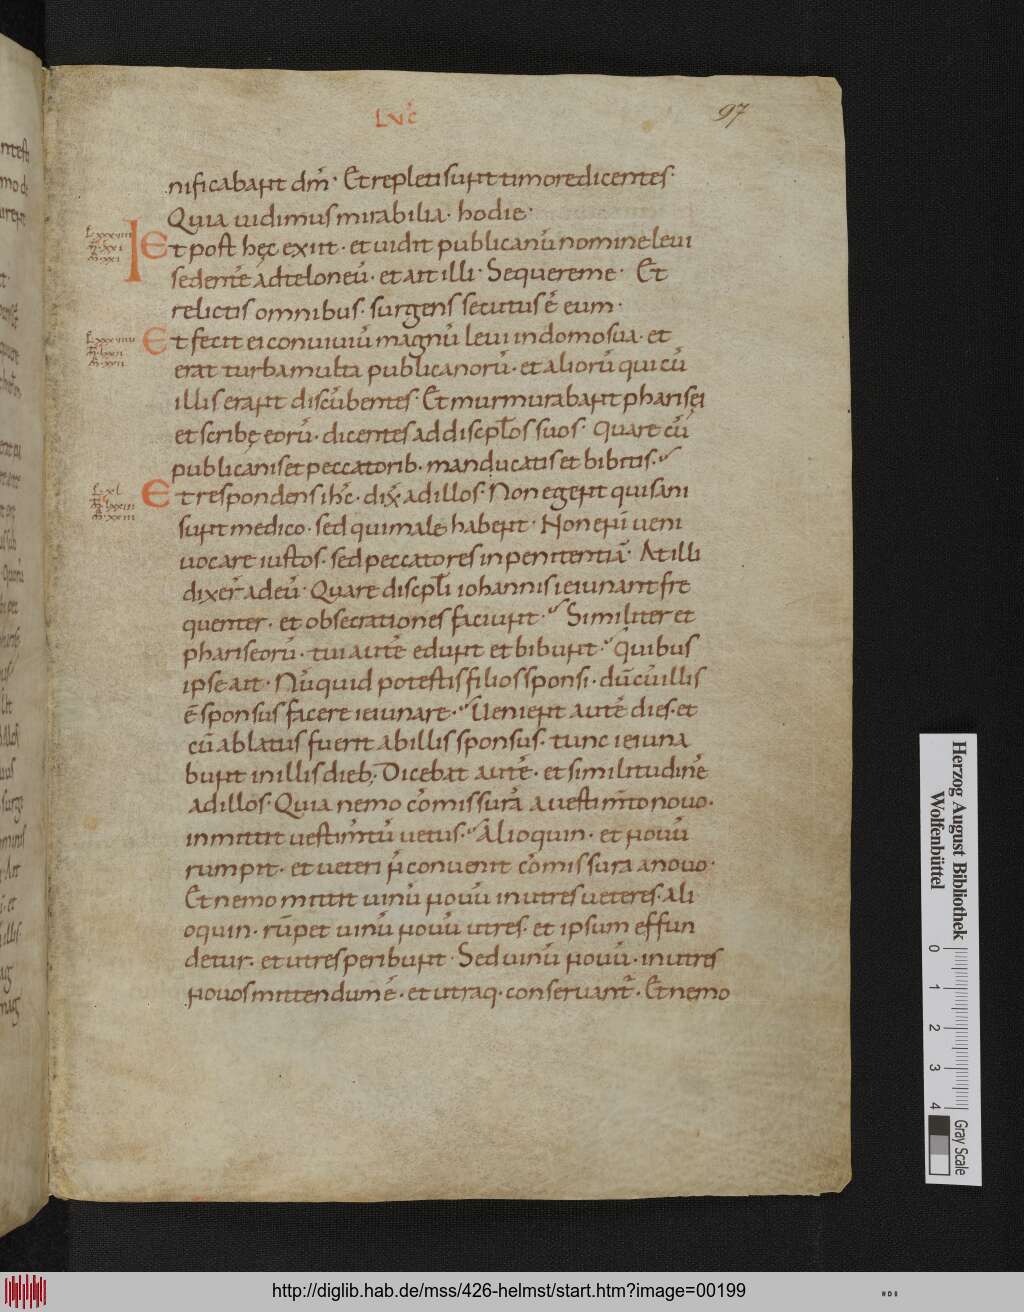 LVC̄
97
nificabant dm̄· Et repleti sunt timore dicentes·
Quia uidimus mirabilia· hodie·
Et post hęc exiit· et uidit publicanū nomine leui
sedentē ad teloneū· et ait illi· Sequere me· Et
relictis omnibus· surgens secutus ē eum·
Et fecit ei conuiuiū magnū leui in domo sua· et
erat turba multa publicanorū· et aliorū qui cū
illis erant discūbentes· Et murmurabant pharisęi
et scribę eorū· dicentes ad discpl̄os suos· Quare cū
publicanis et peccatorib· manducatis et bibitis·
Et respondens ih̄c· dix̄ ad illos· Non egent qui sani
sunt medico· sed qui male habent· Non enī ueni
uocare iustos· sed peccatores in penitentiā· At illi
dixer̄ ad eū· Quare discpl̄i iohannis ieiunant fre
quenter· et obsecrationes faciunt· Similiter et
phariseorū· tui autē edunt et bibunt· quibus
ipse ait· Nūquid potestis filios sponsi· dū cū illis
ē sponsus facere ieiunare· Uenient autē dies· et
cū ablatus fuerit ab illis sponsus· tunc ieiuna
bunt in illis dieb; Dicebat autē· et similitudinē
ad illos· Quia nemo cōmissurā a uestim̄to nouo·
inmittit uestim̄tū uetus· Alioquin· et nouū
rumpit· et ueteri n̄ conuenit cōmissura a nouo·
Et nemo mittit uinū nouū in utres ueteres· Ali
oquin· rūpet uinū nouū utres· et ipsum effun
detur· et utres peribunt· Sed uinū nouū· in utres
nouos mittendum ē· et utraq· conseruant̄· Et nemo
Herzog August Bibliothek
Wolfenbüttel
0 1 2 3 4
Gray Scale
http://diglib.hab.de/mss/426-helmst/start.htm?image=00199